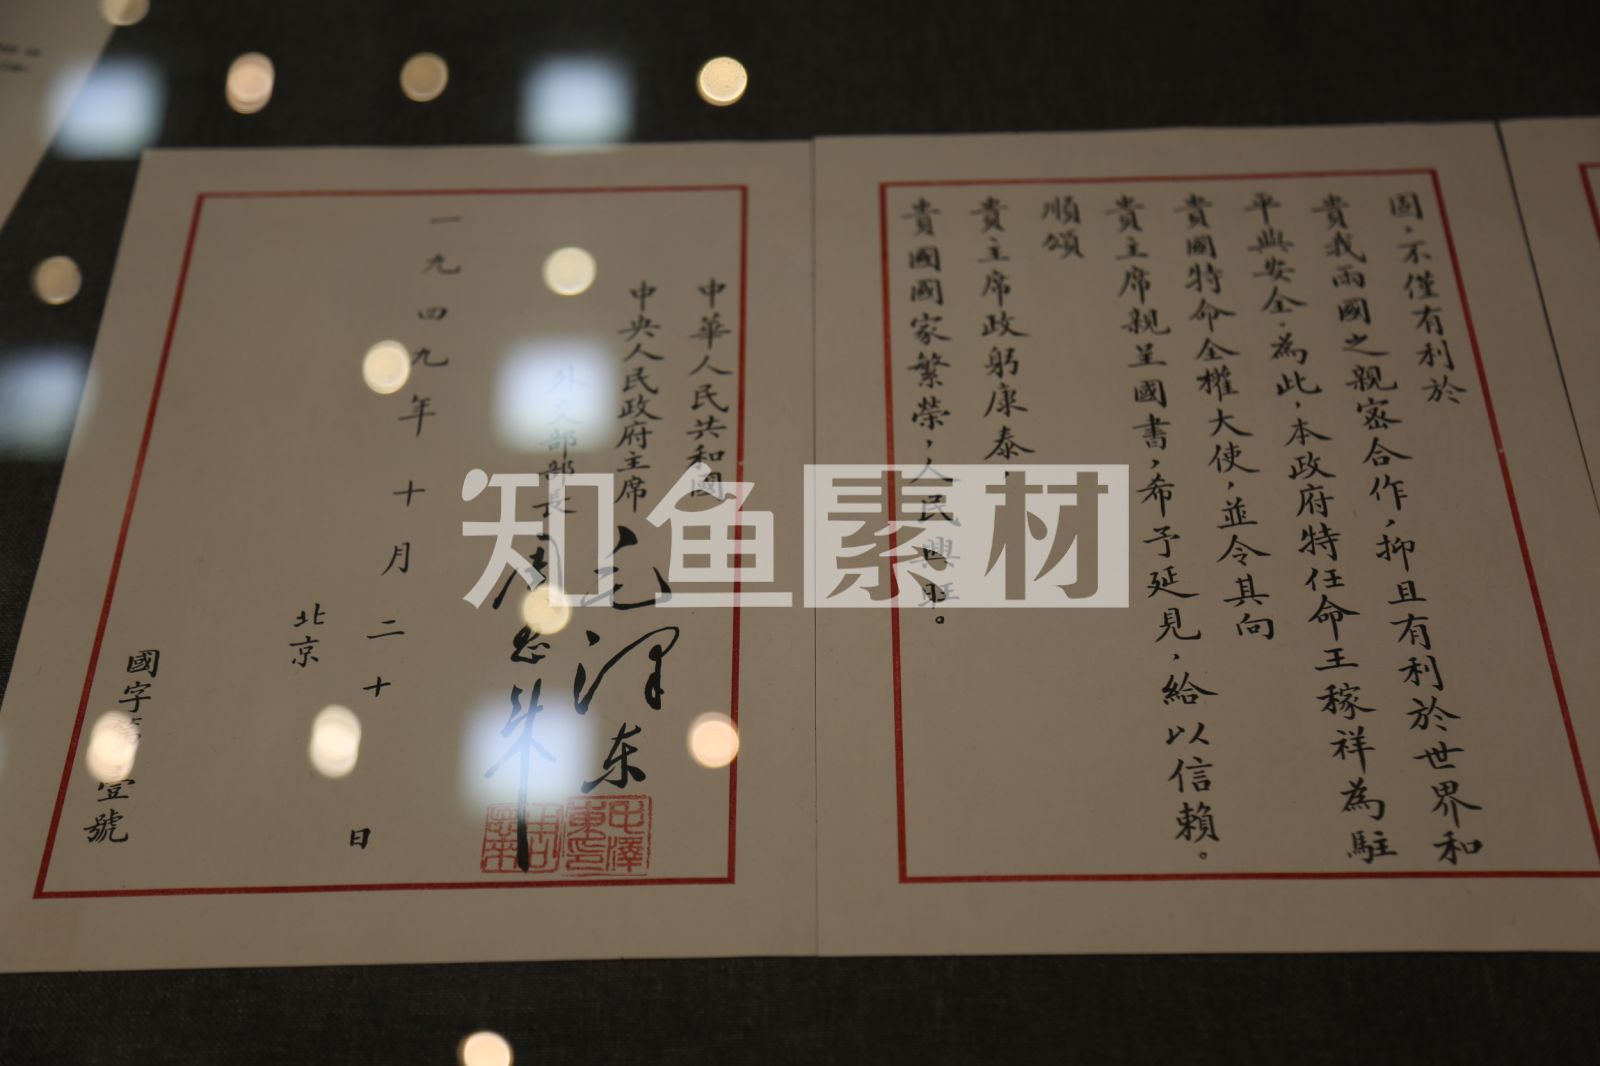 圖，不僅有利於
貴我兩國之親密合作，抑且有利於世界和
平與安全。為此，本政府特任命王稼祥為駐
貴國特命全權大使，並令其向
貴主席親呈國書，希予延見，給以信賴。
順頌
貴主席政躬康泰，
貴國國家繁榮，人民興旺。
中華人民共和國
中央人民政府主席 毛澤东
外交部部長 周恩来
一九四九年十月二十日
北京
國字第壹號
知鱼素材